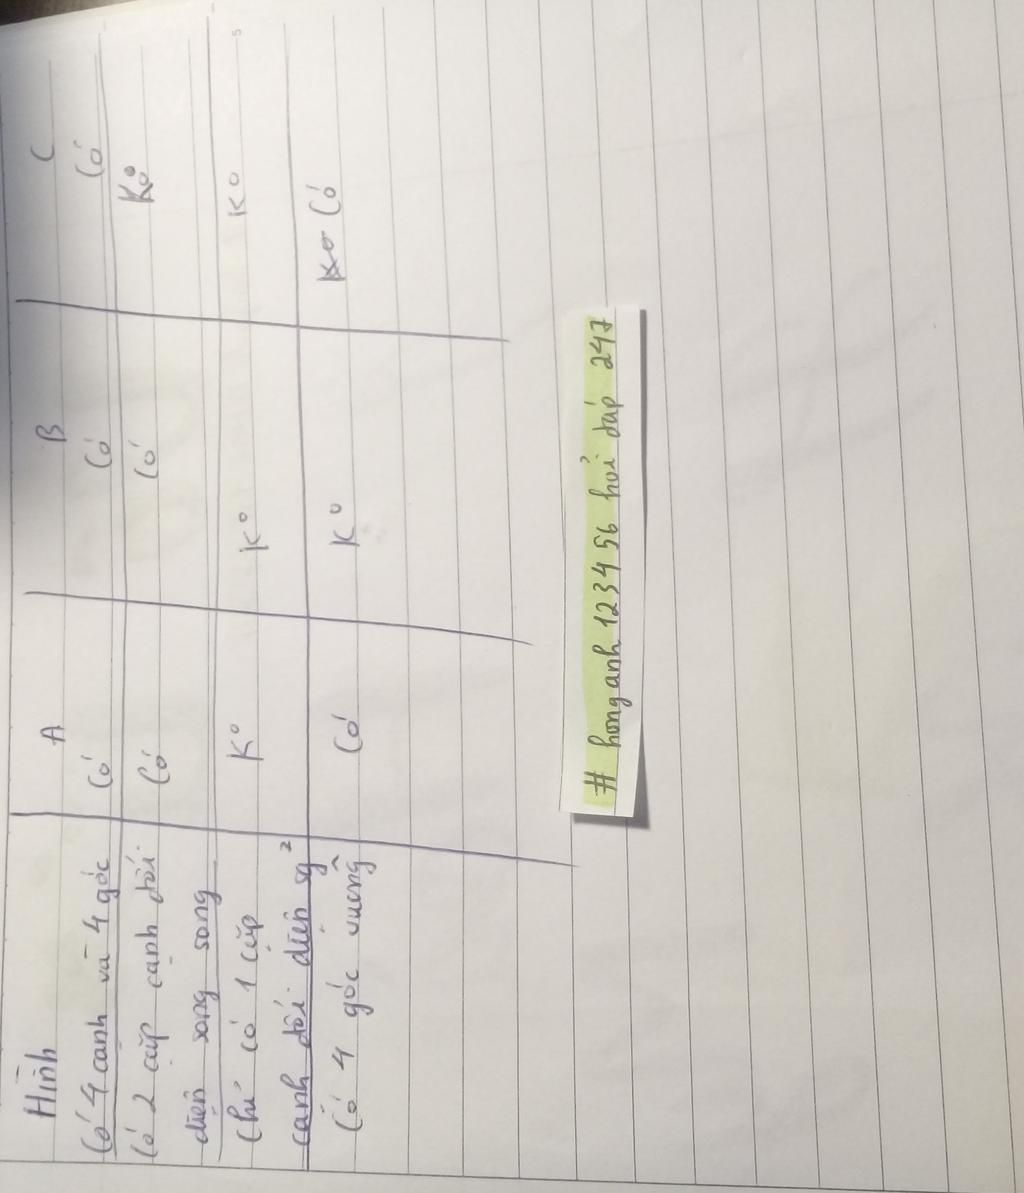 Hình A B C
Có 4 cạnh và 4 góc Có Có Có
Có 2 cặp cạnh đối Có Có Ko
diện song song
Chỉ có 1 cặp Ko Ko Ko
cạnh đối diện sg²
Có 4 góc vuông Có Ko Ko Có
# honganh 123456 hỏi đáp 247